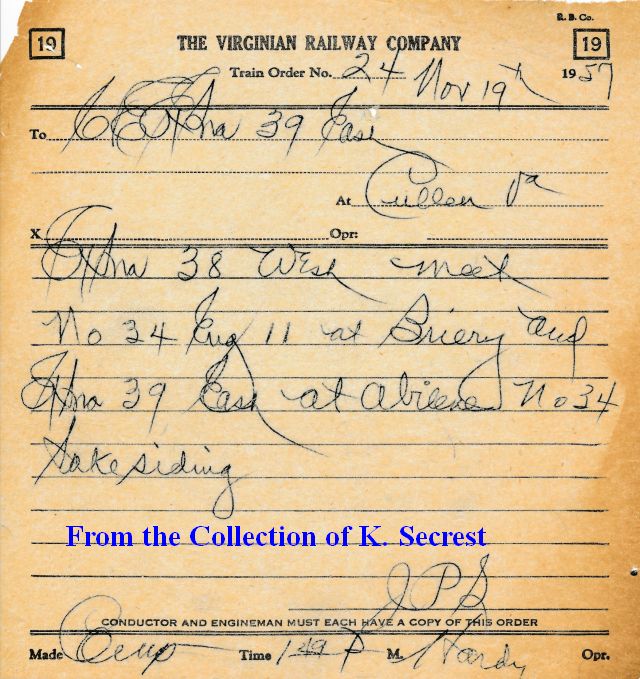 R. B. Co.
19 THE VIRGINIAN RAILWAY COMPANY 19
Train Order No. 24 Nov 19th 1957
To C&E Extra 39 East
At Cullen Va
X Opr:
Extra 38 West meet
No 34 Eng 11 at Briery and
Extra 39 East at Abilene No 34
take siding
From the Collection of K. Secrest
JPS
CONDUCTOR AND ENGINEMAN MUST EACH HAVE A COPY OF THIS ORDER
Made Comp Time 149 P M. Hardy Opr.